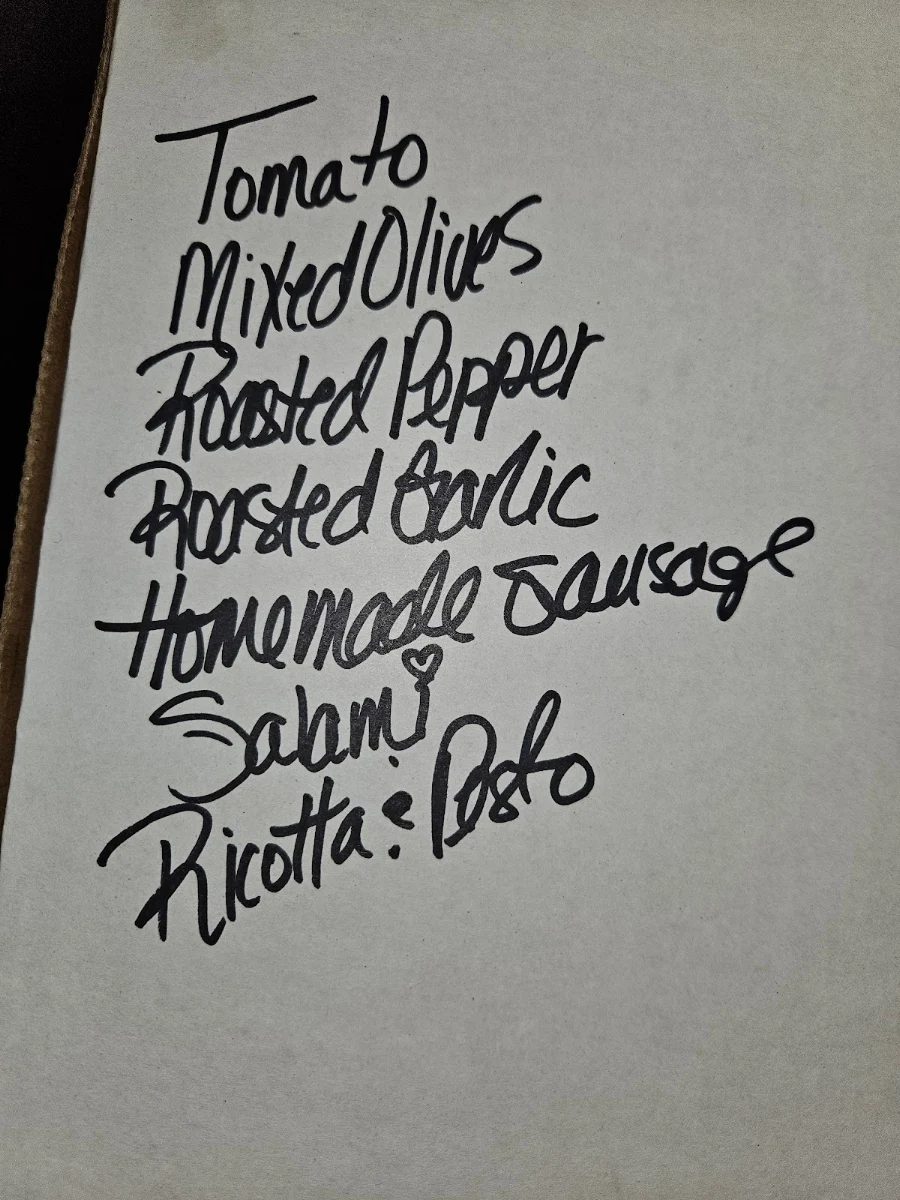 Tomato
Mixed Olives
Roasted Pepper
Roasted Garlic
Homemade Sausage
Salami
Ricotta & Pesto